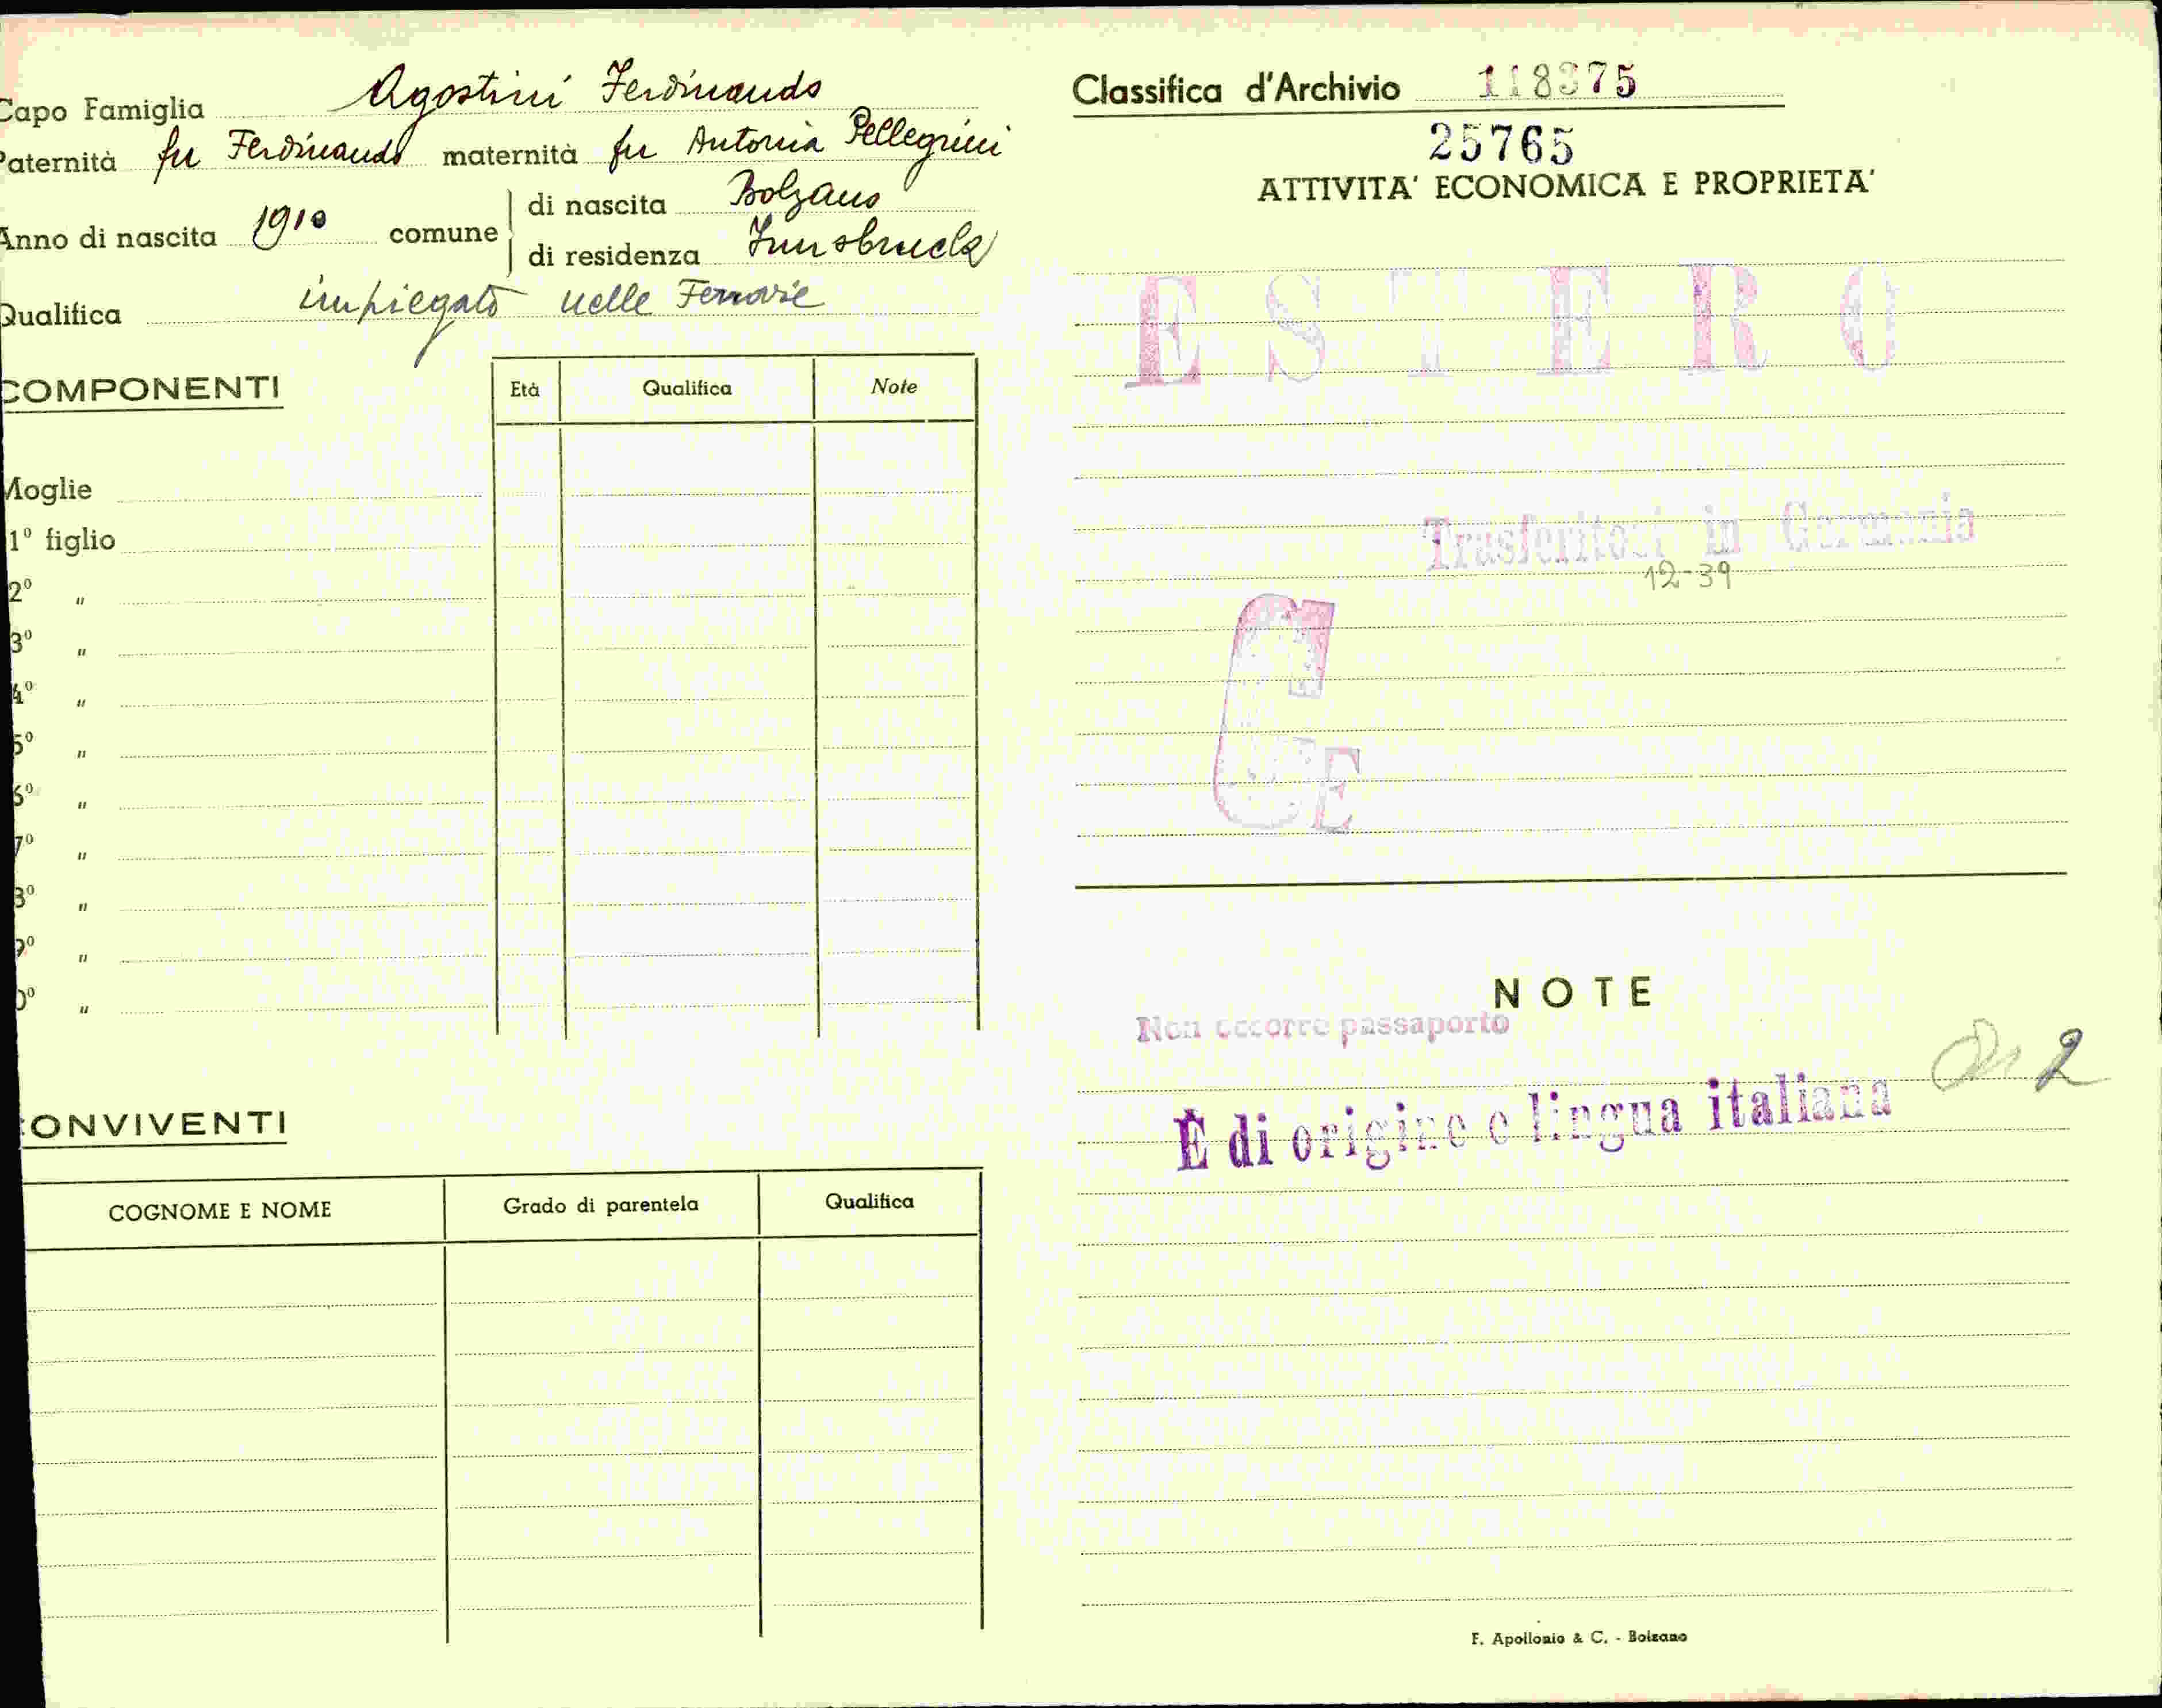 Capo Famiglia Agostini Ferdinando
Paternità fu Ferdinando maternità fu Antonia Pellegrini
Anno di nascita 1910 comune di nascita Bolzano
di residenza Innsbruck
Qualifica impiegato nelle Ferrovie
COMPONENTI Età Qualifica Note
Moglie
1º figlio
2º "
3º "
4º "
5º "
6º "
7º "
8º "
9º "
0º "
CONVIVENTI
COGNOME E NOME Grado di parentela Qualifica
Classifica d'Archivio 118375
25765
ATTIVITA' ECONOMICA E PROPRIETA'
ESTERO
Trasferitosi in Germania
12-39
C
E
NOTE
Non occorre passaporto
2
È di origine e lingua italiana
F. Apollonio & C. - Bolzano